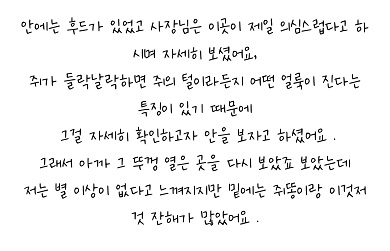 안에는 후드가 있었고 사장님은 이곳이 제일 의심스럽다고 하
시며 자세히 보셨어요,
쥐가 들락날락하면 쥐의 털이라든지 어떤 얼룩이 진다는
특징이 있기 때문에
그걸 자세히 확인하고자 안을 보자고 하셨어요 .
그래서 아까 그 뚜껑 열은 곳을 다시 보았죠 보았는데
저는 별 이상이 없다고 느껴지지만 밑에는 쥐똥이랑 이것저
것 잔해가 많았어요 .